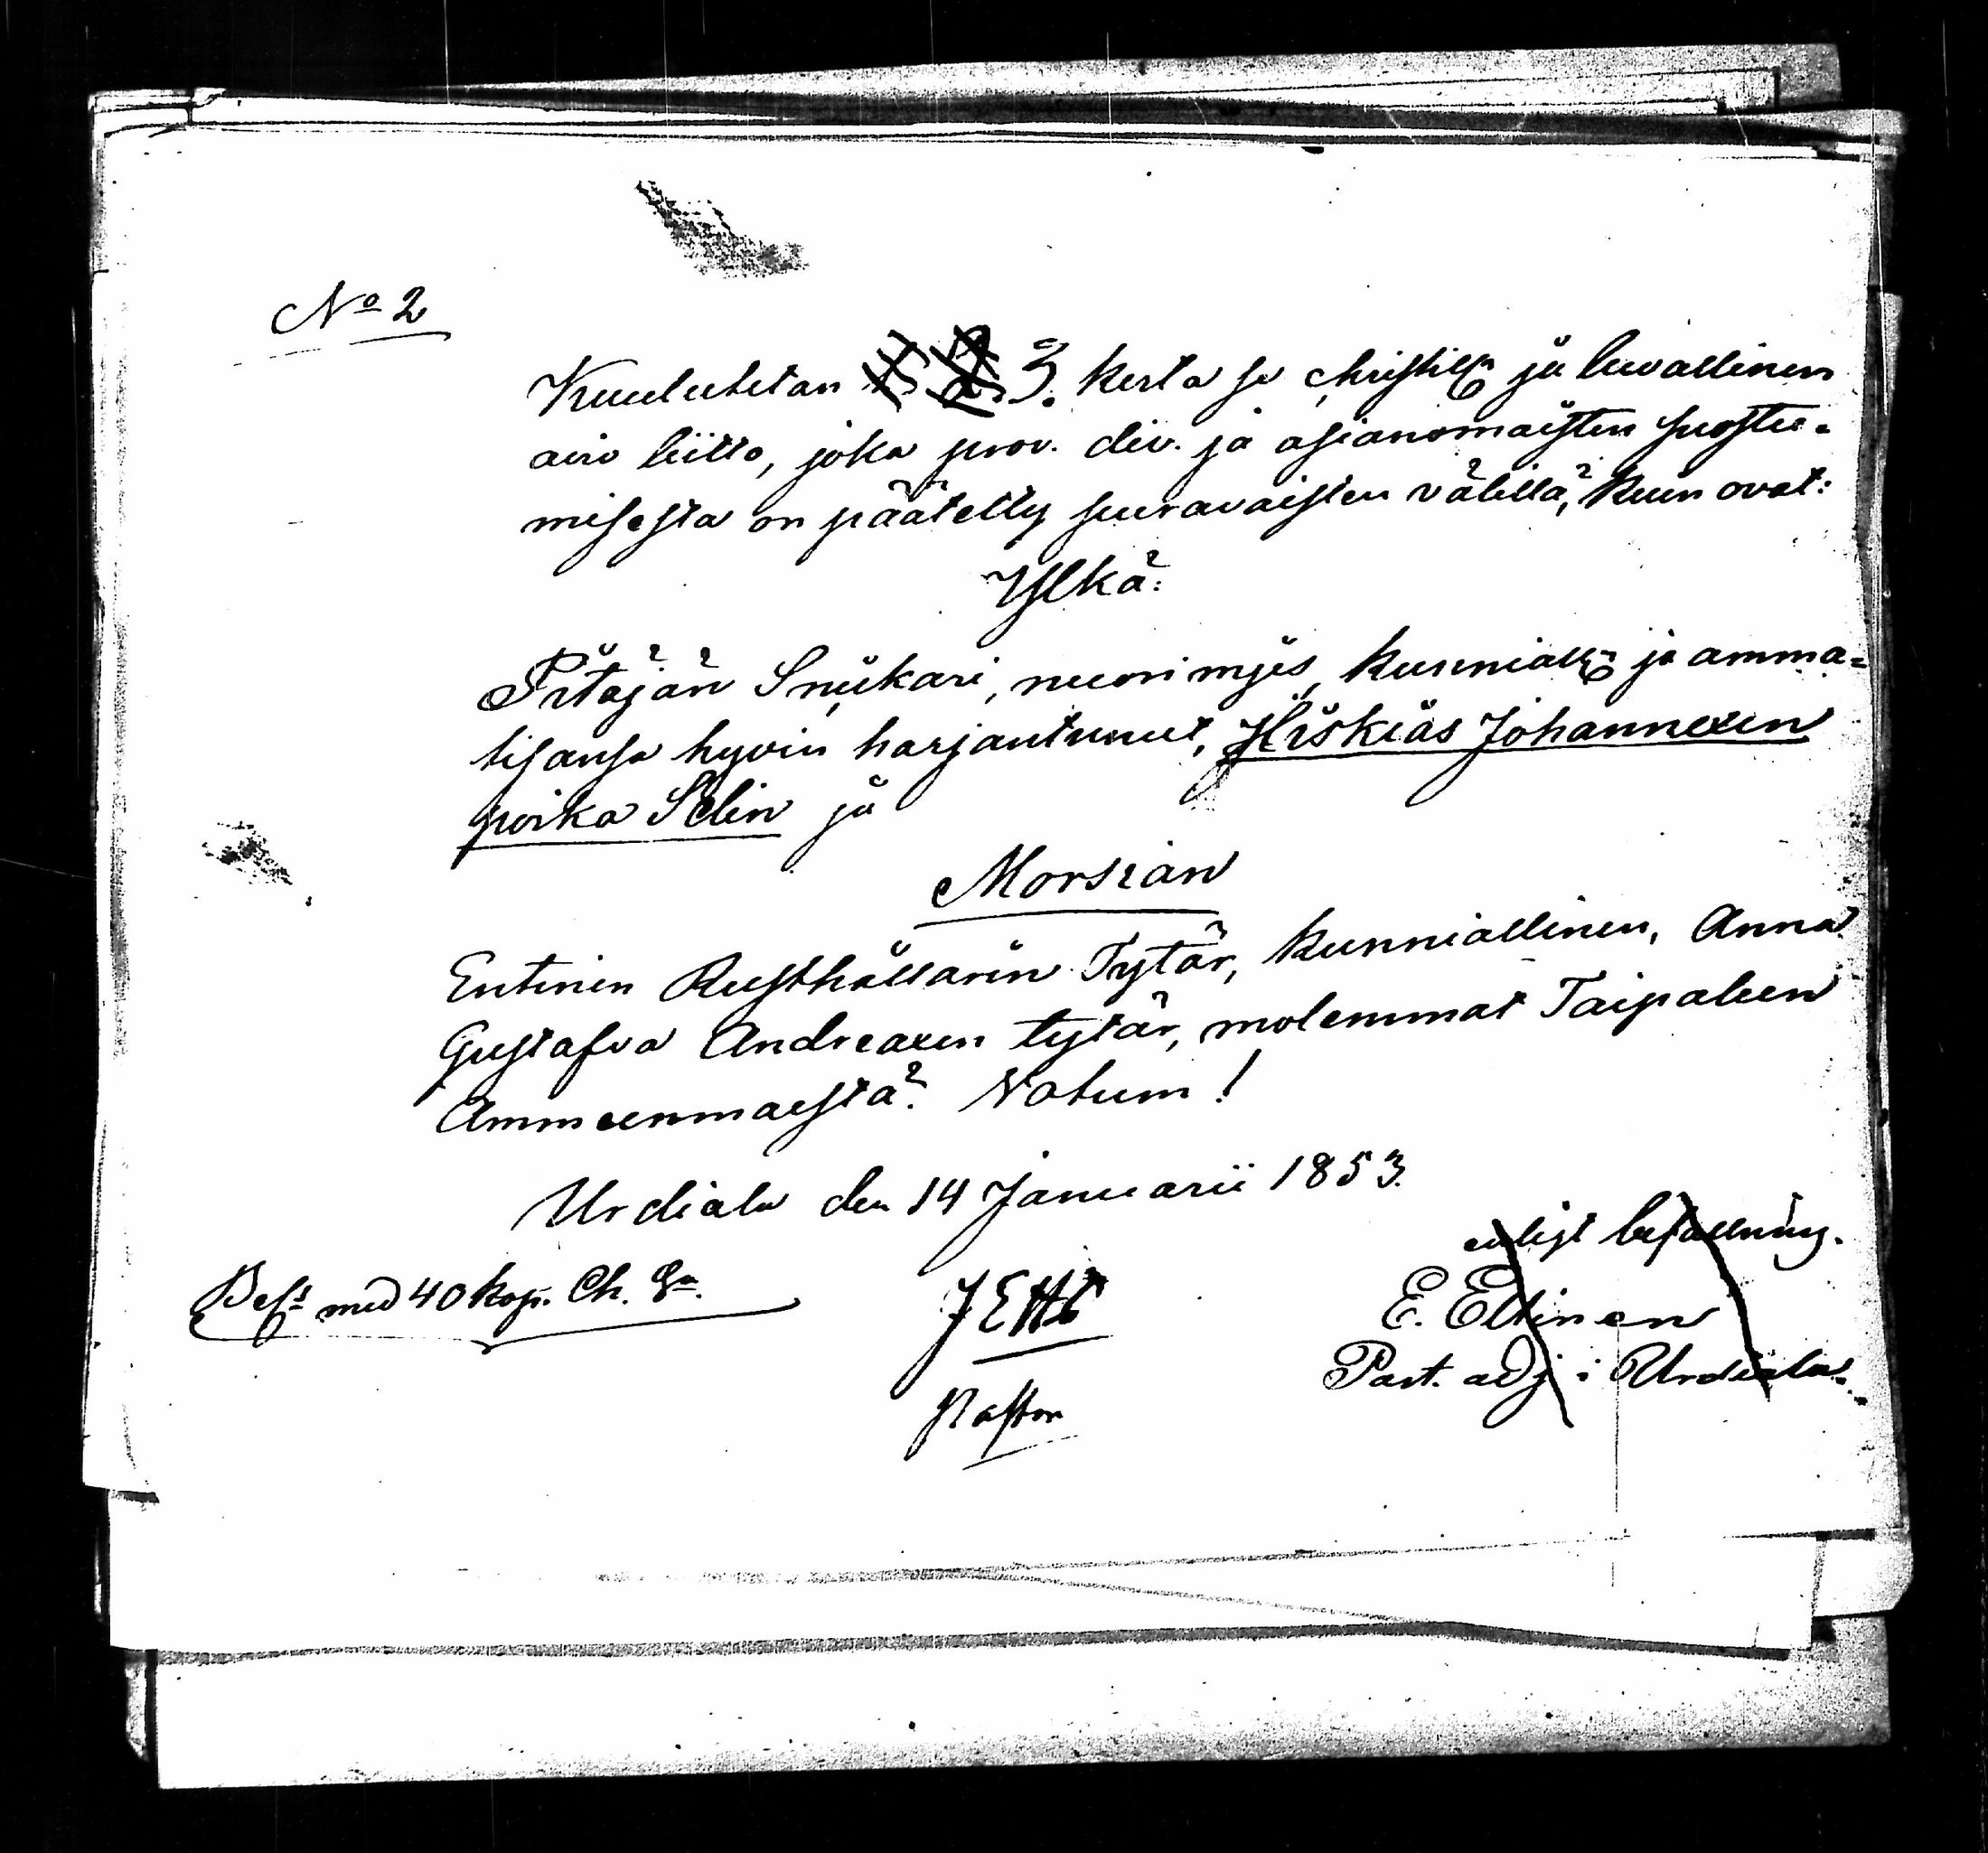 No 2
Kuulutetan 3. kerta se christill. ja luvallinen
avio liitto, joka prov. div. ja asianomaisten suostu=
misesta on päätetty seuravaisten välillä, kuin ovat:
Ylkä:
Pitäjän Snikari, nuorimjes, kunniall. ja amma=
tisansa hyvin harjantunut, Hiskias Johannexen
poika Selin ja
Morsian
Entinen Rusthållarin Tytär, kunniallinen, Anna
Gustafva Andreaxen tytär, molemmat Taipaleen
Ammeenmaesta. Notum!
Urdiala den 14 Januarii 1853.
enligt befallning.
Bef. med 40 kop. Ch. Sr.
E. Eltinen
Past. adj. i Urdiala.
Pastor